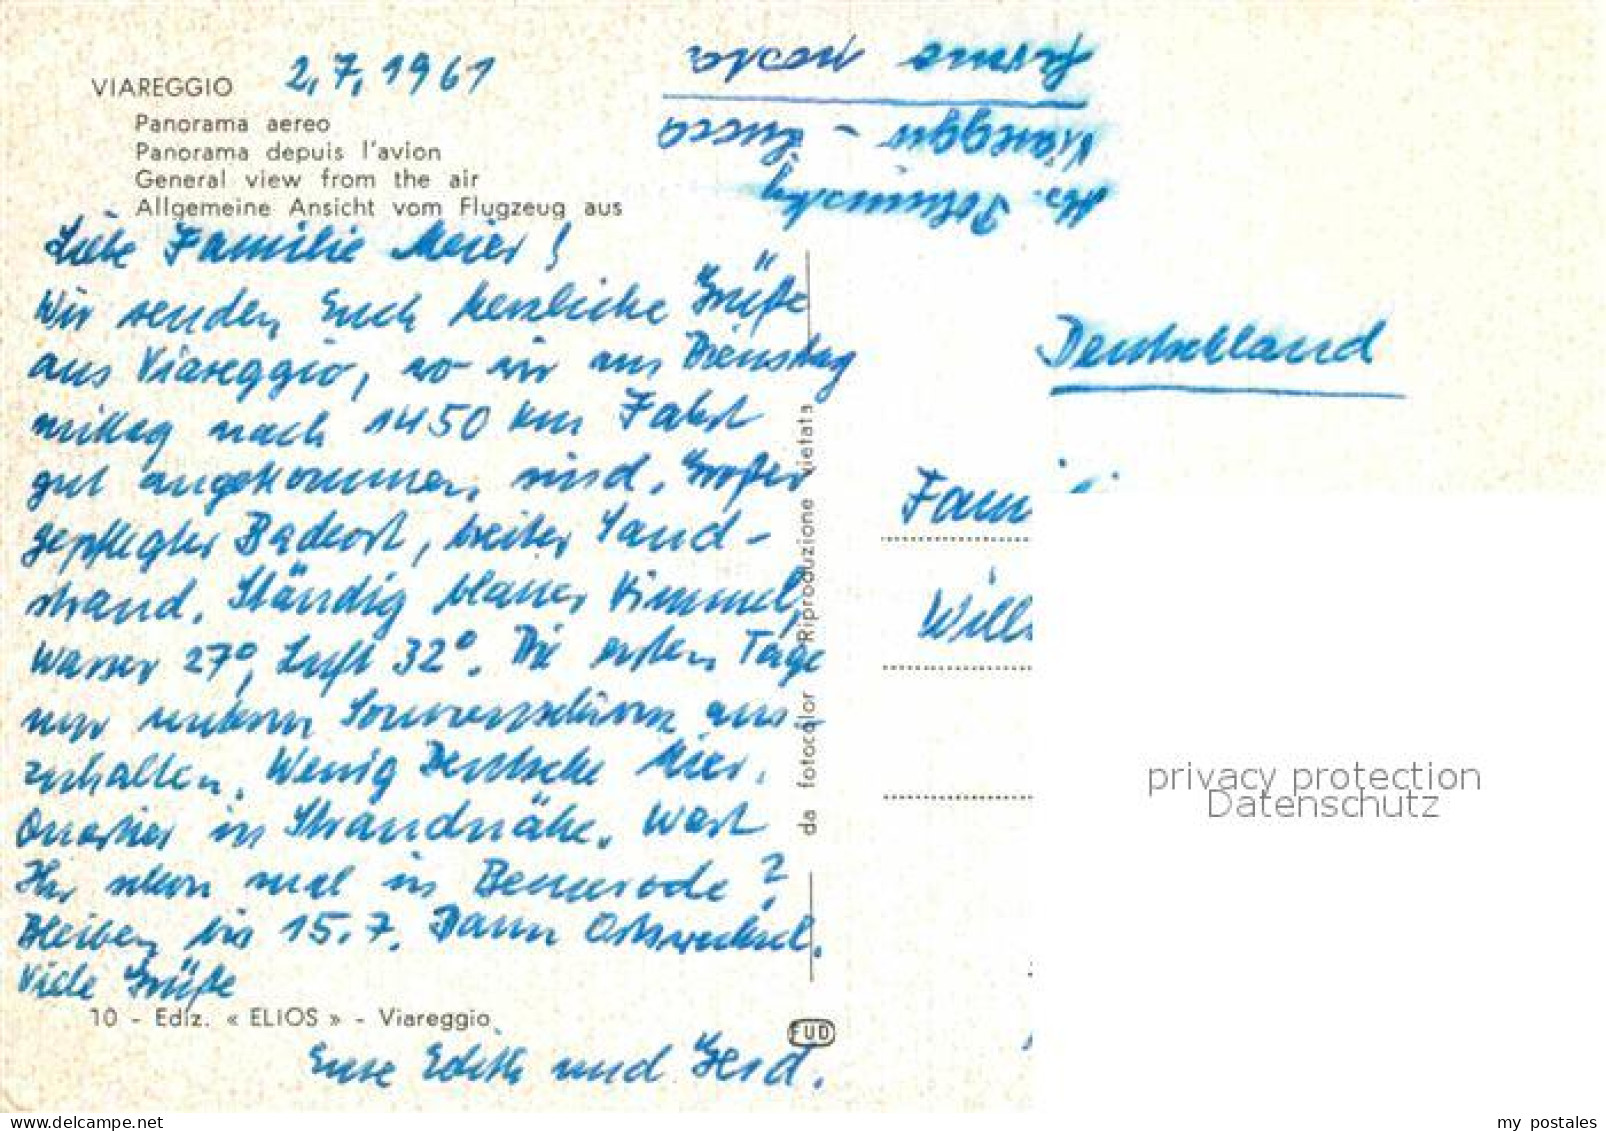 VIAREGGIO 2.7.1961
Panorama aereo
Panorama depuis l'avion
General view from the air
Allgemeine Ansicht vom Flugzeug aus
Liebe Familie Meier!
Wir senden Euch herzliche Grüße
aus Viareggio, wo wir am Dienstag
mittag nach 1450 km Fahrt
gut angekommen sind. Großer
gepflegter Badeort, breiter Sand-
strand. Ständig blauer Himmel,
Wasser 27°, Luft 32°. Die ersten Tage
nur unterm Sonnenschirm aus-
zuhalten. Wenig Deutsche hier.
Quartier in Strandnähe. Wart
Ihr schon mal in Bemerode?
Bleiben bis 15.7. Dann Ortswechsel.
Viele Grüße
10 - Ediz. « ELIOS » - Viareggio
Eure Edith und Gerd.
da fotocolor Riproduzione vietata
FUD
Abs.
Viareggio - Lucca
Deutschland
Fam
Will
privacy protection
Datenschutz
my postales